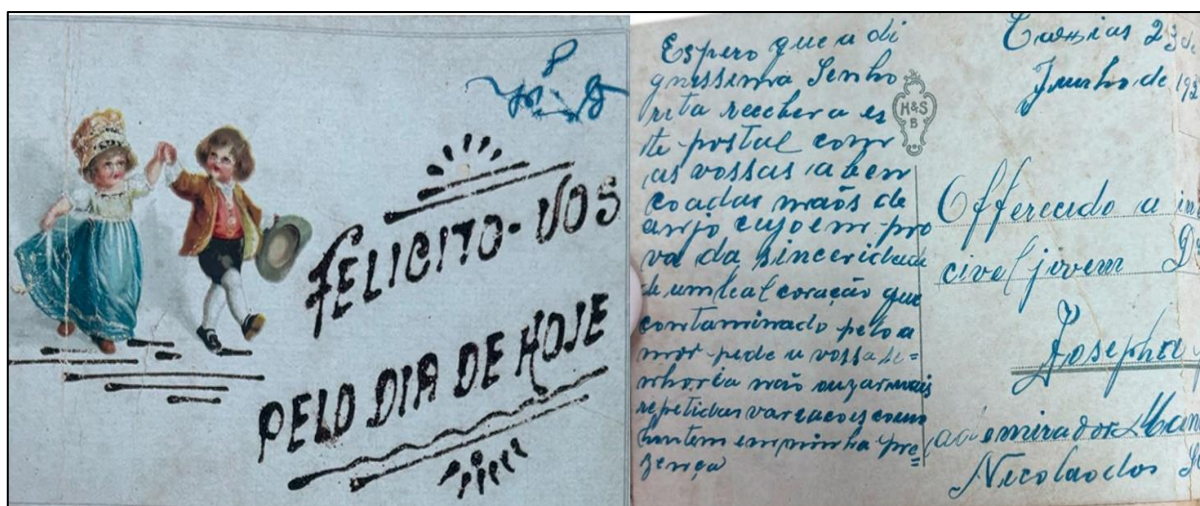 FELICITO-VOS
PELO DIA DE HOJE
Espero que a di
gnissima Senho
rita recebera es
te postal com
as vossas aben
coadas mãos de
anjo cujo em pro
va da sinceridade
de um leal coração que
contaminado pelo a
mor pede a vossa se=
nhoria não
repetidas como
hontem em minha pre=
zença
H&S
B
Caxias 23 de
Junho de 192
Offerecido a
civel jovem
Josepha
ademirador
Nicolao dos